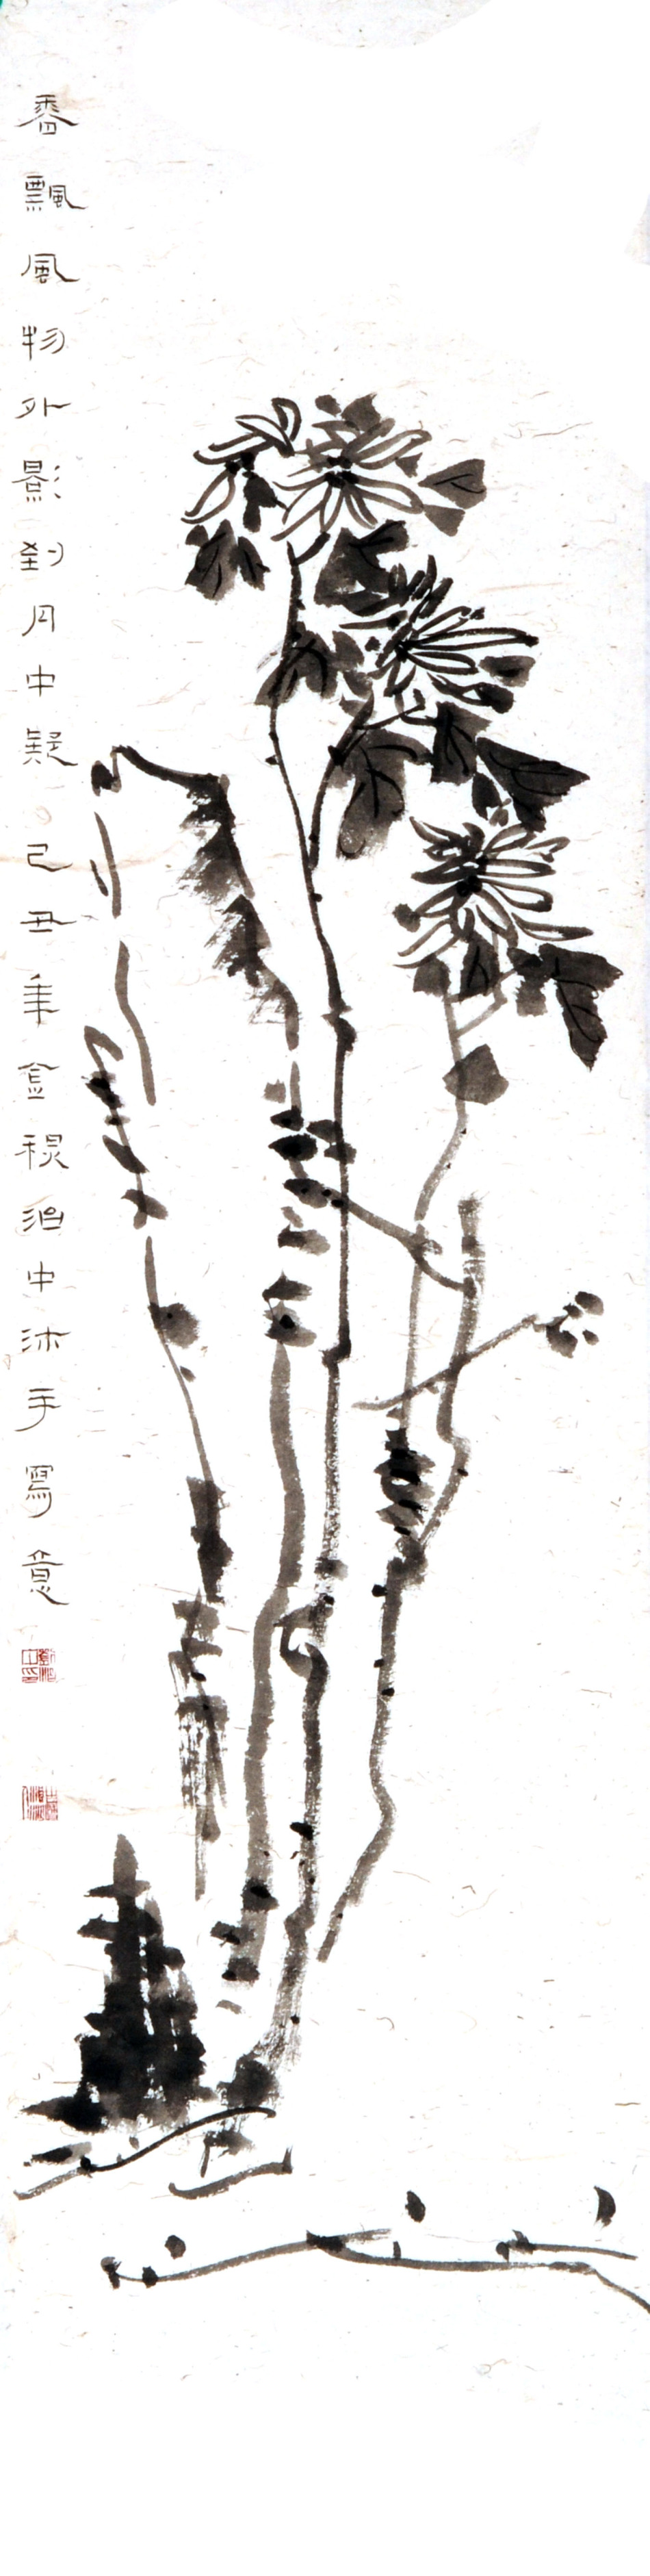 香飄風物外影到月中疑己丑年金秋治中沐手寫意